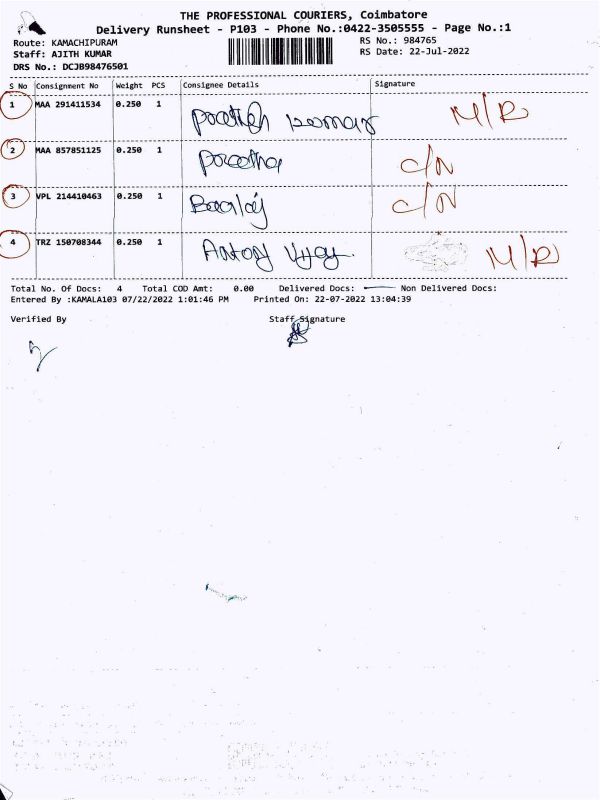 THE PROFESSIONAL COURIERS, Coimbatore
Delivery Runsheet - P103 - Phone No.:0422-3505555 - Page No.:1
Route: KAMACHIPURAM
RS No.: 984765
Staff: AJITH KUMAR
RS Date: 22-Jul-2022
DRS No.: DCJB98476501
S No Consignment No Weight PCS Consignee Details Signature
1 MAA 291411534 0.250 1 M/R
2 MAA 857851125 0.250 1 C/N
3 VPL 214410463 0.250 1 Baalaj C/N
4 TRZ 150708344 0.250 1 Antony Vijay M/R
Total No. Of Docs: 4 Total COD Amt: 0.00 Delivered Docs: Non Delivered Docs:
Entered By :KAMALA103 07/22/2022 1:01:46 PM Printed On: 22-07-2022 13:04:39
Verified By Staff Signature